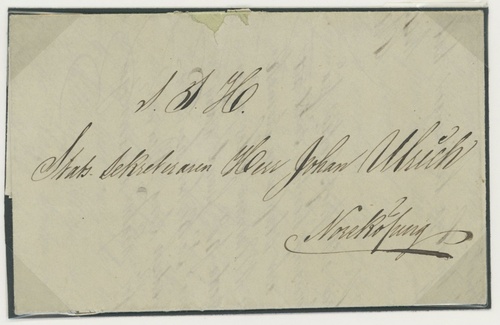 S. T. H.
Stats. Sekreteraren Herr Johan Ulrich
Norrköping